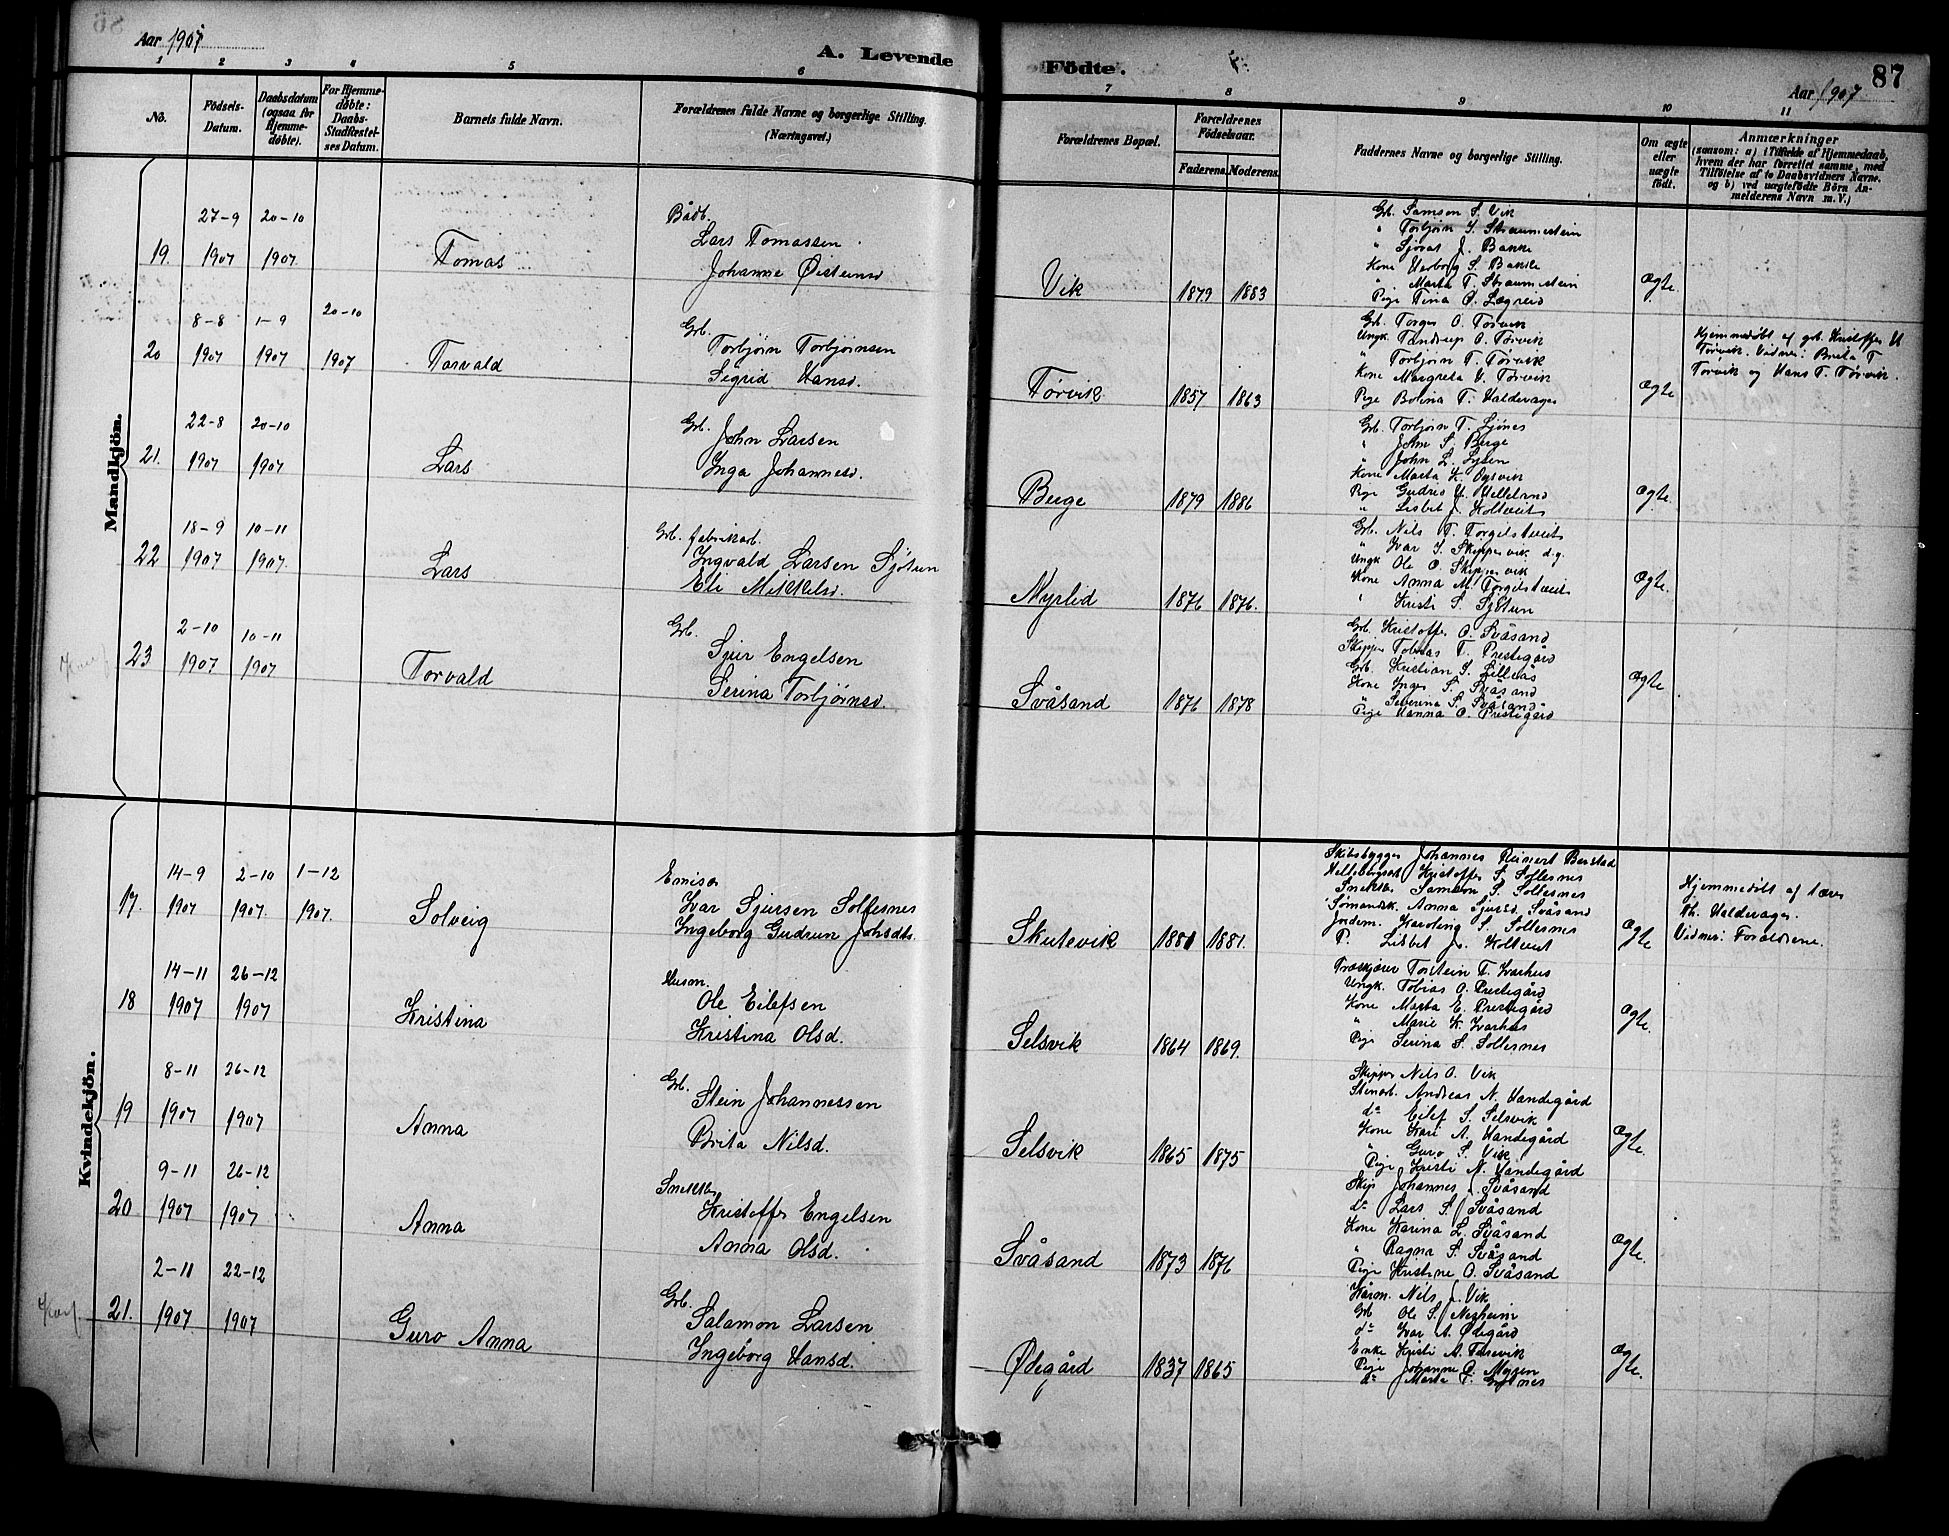 Aar 1907
A. Levende
Födte.
Aar 1907
87
1 2 3 4 5 6 7 8 9 10 11
No.
Födsels-
Datum.
Daabsdatum
(ogsaa for
Hjemme-
döbte).
For Hjemme-
döbte:
Daabs-
Stadfæstel-
ses Datum.
Barnets fulde Navn.
Forældrenes fulde Navne og borgerlige Stilling.
(Næringsvei.)
Forældrenes Bopæl.
Forældrenes
Födselsaar.
Faderens. Moderens.
Faddernes Navne og borgerlige Stilling.
Om ægte
eller
uægte
födt.
Anmærkninger
(saasom: a) i Tilfælde af Hjemmedaab,
hvem der har forrettet samme, med
Tilföielse af to Daabsvidners Navne.
og b) ved uægtefödte Börn An-
melderens Navn m. V.)
Mandkjön.
19. 27-9 1907 20-10 1907
Tomas
Lars Tomassen
Johanne Øistensd
Vik 1879 1883
Gb. Samson S. Vik
" Torbjørn S. Straumestein
" Sjovat J. Bakke
Kone Herborg S. Bakke
" Marta T. Straumestein
Pige Tina O. Lægreid
Ægte.
20 8-8 1907 1-9 1907 20-10 1907
Torvald
Grb.
Torbjørn Torbjørnsen
Sigrid Hansd.
Tørvik 1857 1863
Grb. Torger O. Tørvik
Ungk. Tandrup O. Tørvik
" Torbjørn T. Tørvik
Kone Margreta H. Tørvik
Pige Bolina T. Haldorager
Ægte
Hjemmedøbt af grb. Kristoffer H
Tørvik. Vidner: Brita T
Tørvik og Hans T. Tørvik.
21. 22-8 1907 20-10 1907
Lars
Grb.
John Larsen
Inga Johannesd.
Berge 1879 1886
Grb. Torbjørn T.
" John S. Berge
" John L.
Kone Marta K.
Pige Gudrid H. Helleland
" Lisbet J. Kolltveit
Ægte.
22 18-9 1907 10-11 1907
Lars
Grb. fabrikarb.
Ingvald Larsen Sjøtun
Eli Mikkelsd.
Myrlid 1876 1876.
Grb. Nils T. Torgilstveit
" Ivar S. Skippervik d.y.
Ungk Ole O. Skippervik
Kone Anna M. Torgilstveit
" Kristi S. Sjøtun
Ægte.
23 2-10 1907 10-11 1907
Torvald
Grb.
Sjur Engelsen
Serina Torbjørnsd.
Svåsand 1876 1878
Grb. Kristoffer O. Svåsand
Skipper Tobias T. Prestegård
Grb. Kristian S. Lilleås
Kone Inger S. Svåsand
" Severina S. Svåsand
Pige Hanna O. Prestegård
Ægte
Kvindekjön.
17. 14-9 1907 2-10 1907. 1-12 1907.
Solveig
Ivar Sjursen Solfesnes
Ingeborg Gudrun Johsdtr.
Skutevik 1881 1881.
Skibsbygger Johannes Reinert Berstad
Kristoffer S. Sollesnes
Samson S. Sollesnes
Anna Sjursd. Svåsand
Jordem. Karoline S. Sollesnes
P. Lisbet J. Kolltveit
Ægte
Hjemmedøbt af lærer
Th. Haldorager.
Vidner: Forældrene.
18 14-11 1907 26-12 1907
Kristina
Husm.
Ole Eilefsen
Kristina Olsd.
Selsvik 1864 1869.
Torstein T. Ivarhus
Ungk. Tobias O. Prestegård
Kone Marta E. Prestegård
" Marie K. Ivarhus
Pige Serina S. Sollesnes
Ægte.
19 8-11 1907 26-12 1907
Anna
Grb.
Stein Johannessen
Brita Nilsd.
Selsvik 1865 1875
Skipper Nils O. Vik
Stenarb. Andreas N. Vandegård
do Eilef S. Selsvik
Kone Kari A. Vandegård
" Guro S. Vik
Pige Kristi N. Vandegård
Ægte.
20 9-11 1907 26-12 1907
Anna
Kristoffer Engelsen
Anna Olsd.
Svåsand 1873 1876
Skip Johannes J. Svåsand
do Lars S. Svåsand
Kone Karina L. Svåsand
" Ragna S. Svåsand
Pige Kristine O. Svåsand
Ægte.
21. 2-11 1907 22-12 1907
Guro Anna
Grb.
Salamon Larsen
Ingeborg Hansd.
Ødegård 1837 1865
Nils J. Vik
Grb Ole S. Nesheim
do Ivar A. Ødegård
Enke Kristi A.
Pige Johanne
do Marta
Ægte.